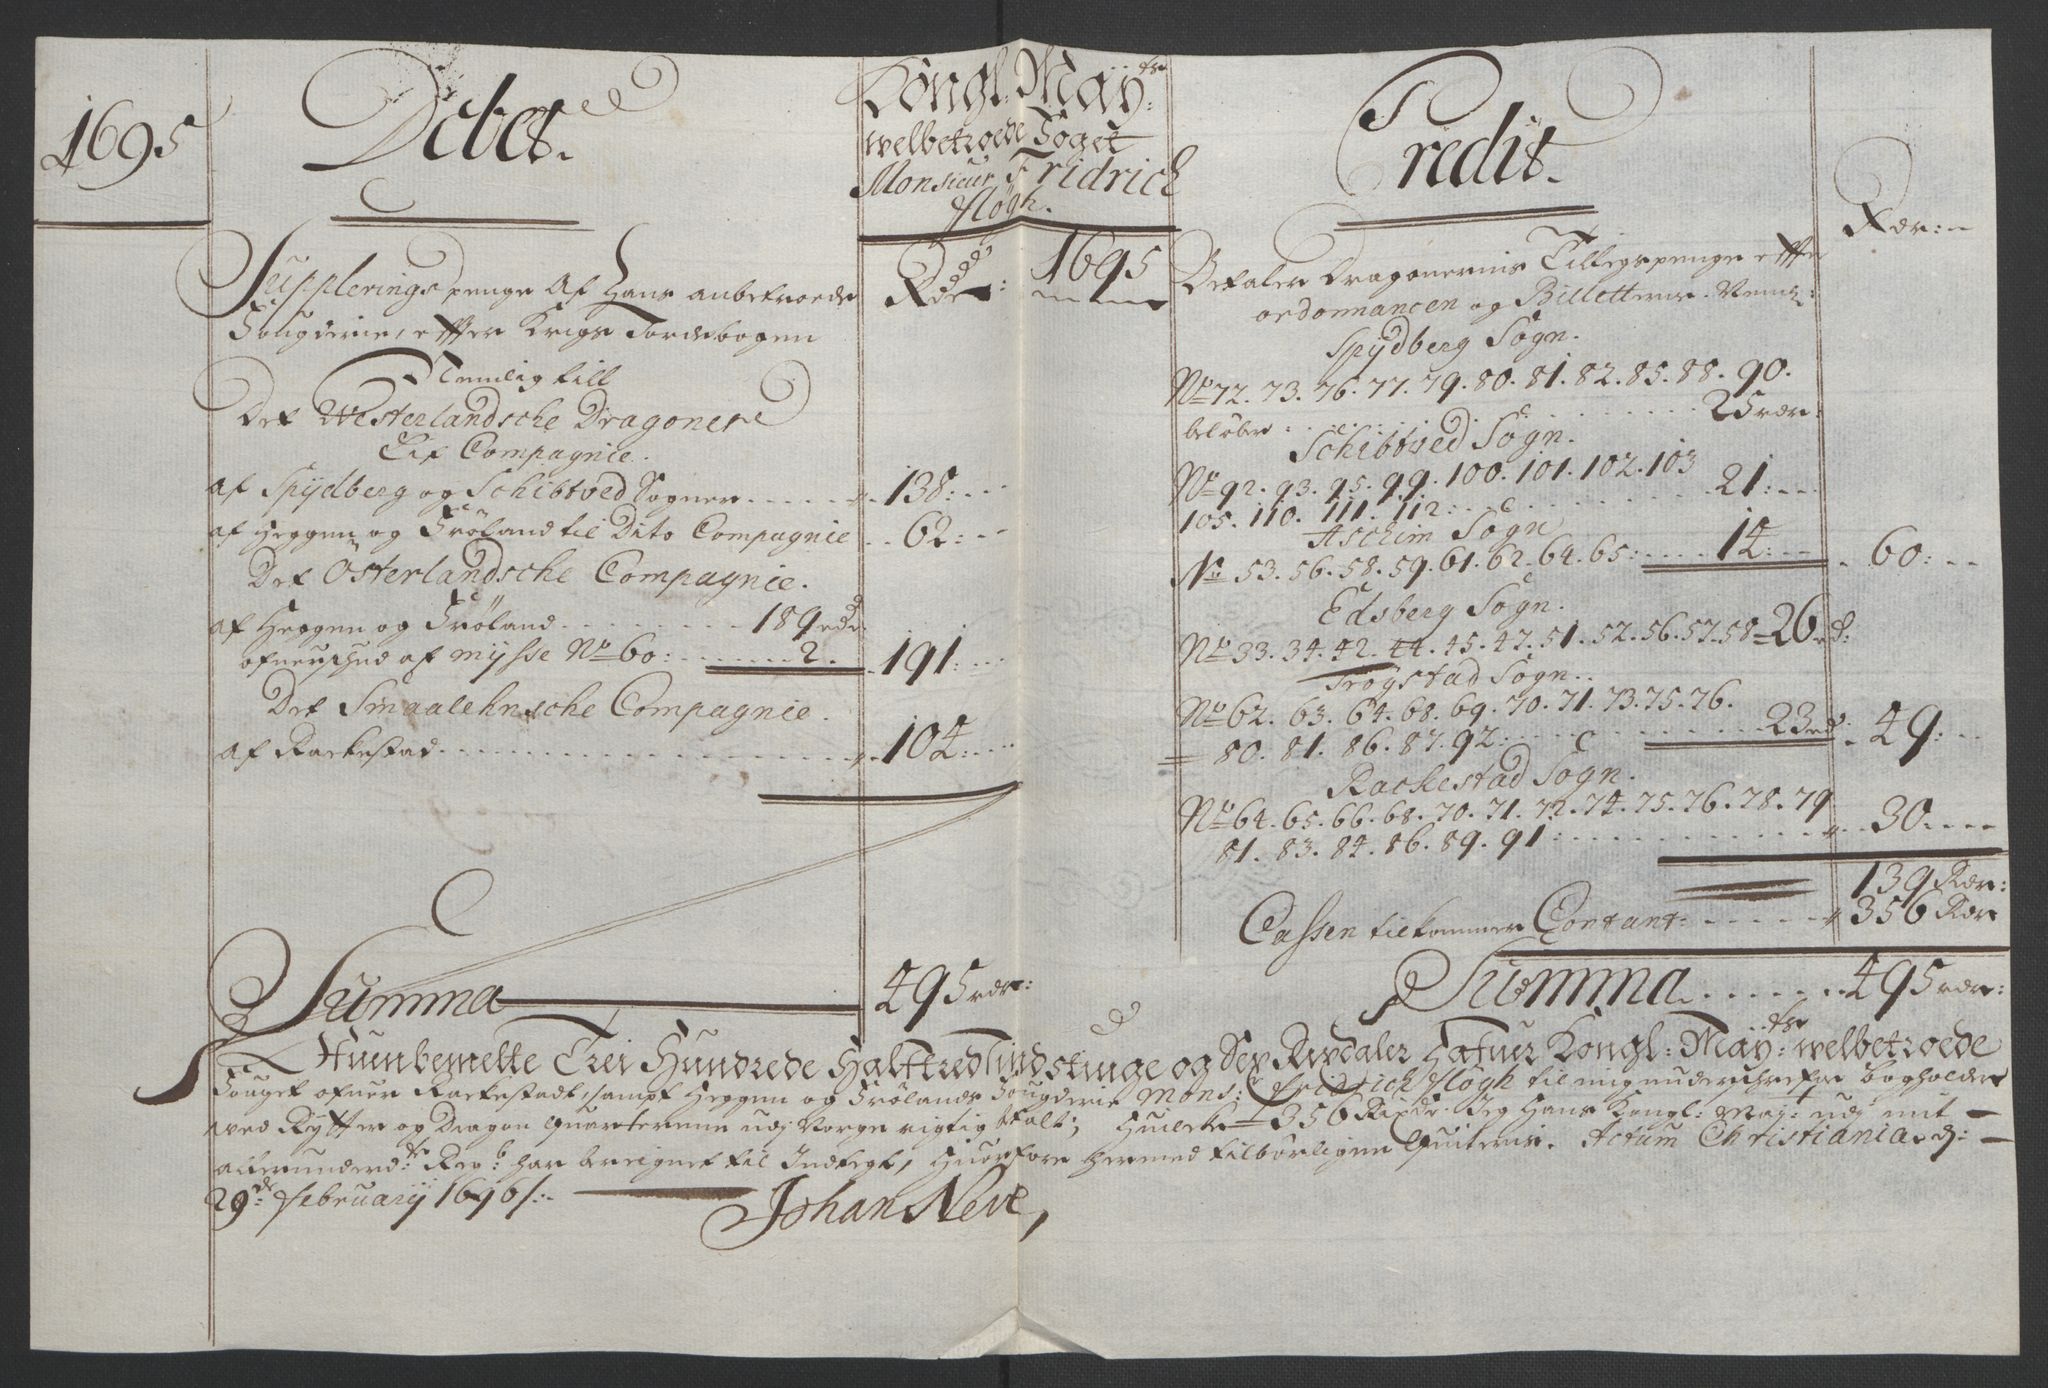 1695
Debet.
Kongl: Maÿ:ts
welbetroede Foget
Monsieur Fridrich
Högh.
Rdr:
Suppleringspenge Af Hans anbetroede
Fougderie, effter Krigs Jordebogen
Nemlig till
Det Westerlandsche Dragoner
Lif Compagnie.
af Spÿdberg og Schibtved Sogner 138:
af Heggen og Fröland til Dito Compagnie 62:
Det Osterlandsche Compagnie.
af Heggen og Fröland 189 rdr
af mÿsse No 60: 2. 191:
Det Smaalehnsche Compagnie.
af Rackestad 104:
Summa 495 rdr:
1695
Credit.
Rdr:
Betaler Dragonernis Tillegspenge effter
ordonnancen og Billetterne. Neml:
Spÿdberg Sogn.
No 72. 73. 76. 77. 79. 80. 81. 82. 85. 88. 90.
belöber 25 rdr:
Schibtved Sogn.
No 92. 93. 95. 99. 100. 101. 102. 103
105. 110. 111. 112: 21:
Aschim Sogn
No 53. 56. 58. 59. 61. 62. 64. 65: 14: 60:
Edsberg Sogn.
No 33. 34. 42. 44. 45. 47. 51. 52. 56. 57. 58 = 26 rd:
Trögstad Sogn.
No 62. 63. 64. 68. 69. 70. 71. 73. 75. 76.
80. 81. 86. 87. 92: 23 rd. 49:
Rackestad Sogn.
No 64. 65. 66. 68. 70. 71. 72. 74. 75. 76. 78. 79
81. 83. 84. 86. 89. 91: 30.
139 Rdr:
Cassen tilkommer Contant: 356 Rdr
Summa 495 rdr:
Trei Hundrede Halftredsindstiuge og Sex Rixdaler Hafuer Kongl: Maÿ:ts welbetroede
Fouget ofuer Rackestad, sampt Heggen og Frölands Fougderie Mons: Fridrich Högh til mig underschrefne bogholder
ved Rÿtter og Dragon quarterene udj Norge rigtig betalt, Huilcke 356 Rixdr. Jeg Hans Kongl: Maj:t udj mit
allerunderd: har beregnet til Indtegt, Huorfore hermed tilbörligen quiteris. Actum Christiania d:
29de februarÿ 1696
Johan Neve,